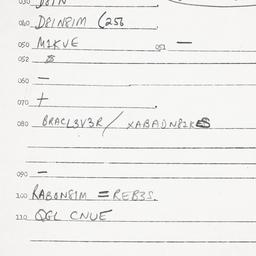 030 D8IN
040 D81N81M (256
050 M1KVE 051 —
052 8
060 —
070 +
080 BRACL3V3R / XABADN81KES
090 —
100 RABONE1M = REB3S.
110 QGL CNUE